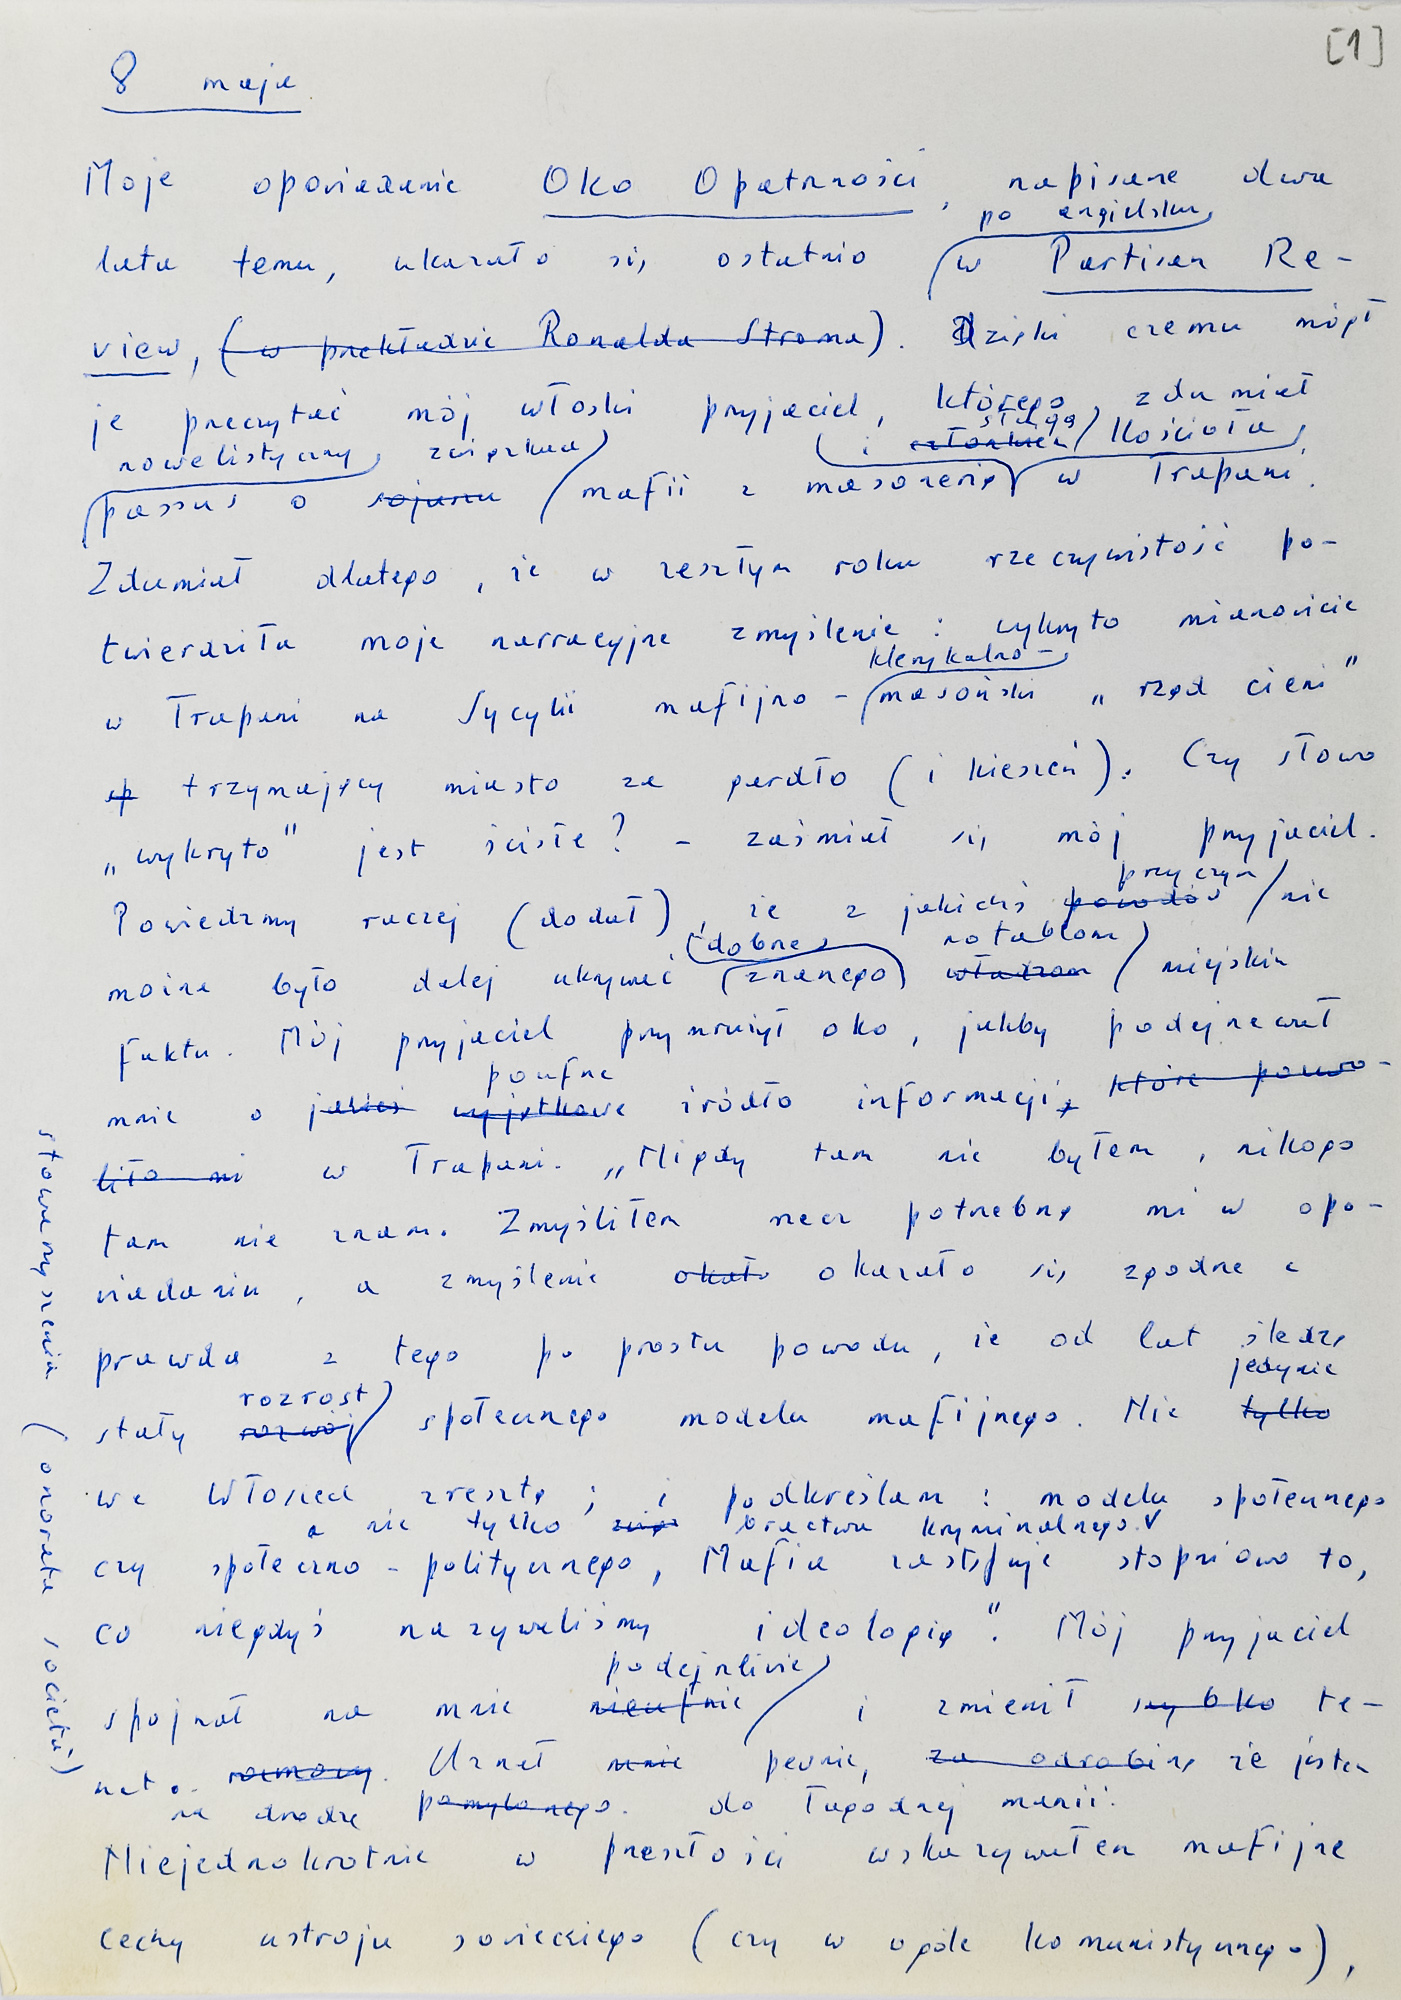 [1]
8 maja
Moje opowiadanie Oko Opatrzności, napisane dwa
po angielsku
lata temu, ukazało się ostatnio w Partisan Re-
view, (w przekładzie Ronalda Stroma). Dzięki czemu mógł
je przeczytać mój włoski przyjaciel, którego zdumiał
nowelistyczny związkach i członkiem sługą Kościoła
passus o sojuszu mafii z masonerią w Trapani.
Zdumiał dlatego, że w zeszłym roku rzeczywistość po-
twierdziła moje narracyjne zmyślenie: wykryto mianowicie
klerykalno-
w Trapani na Sycylii mafijno-masoński „rząd cieni"
trzymający miasto za gardło (i kieszeń). Czy słowo
„wykryto" jest ścisłe? - zaśmiał się mój przyjaciel.
przyczyn
Powiedzmy raczej (dodał), że z jakichś powodów nie
dobrze notablom
można było dalej ukrywać znanego władzom miejskim
faktu. Mój przyjaciel przymrużył oko, jakby podejrzewał
poufne
mnie o jakieś wyjątkowe źródło informacji, które pozwo-
liło mi w Trapani. „Nigdy tam nie byłem, nikogo
tam nie znam. Zmyśliłem rzecz potrzebną mi w opo-
wiadaniu, a zmyślenie okało okazało się zgodne z
prawdą z tego po prostu powodu, że od lat śledzę
rozrost jedynie
stały rozwój społecznego modelu mafijnego. Nie tylko
we Włoszech zresztą; i podkreślam: modelu społecznego
a nie tylko bractwa kryminalnego.
czy społeczno-politycznego, Mafia zastępuje stopniowo to,
co niegdyś nazywaliśmy ideologią". Mój przyjaciel
podejrzliwie
spojrzał na mnie nieufnie i zmienił szybko te-
mat rozmowy. Uznał mnie pewnie, za odrobinę że jestem
na drodze pomylonego. do łagodnej manii.
Niejednokrotnie w przeszłości wskazywałem mafijne
cechy ustroju sowieckiego (czy w ogóle komunistycznego),
stowarzyszenia (onorata società)